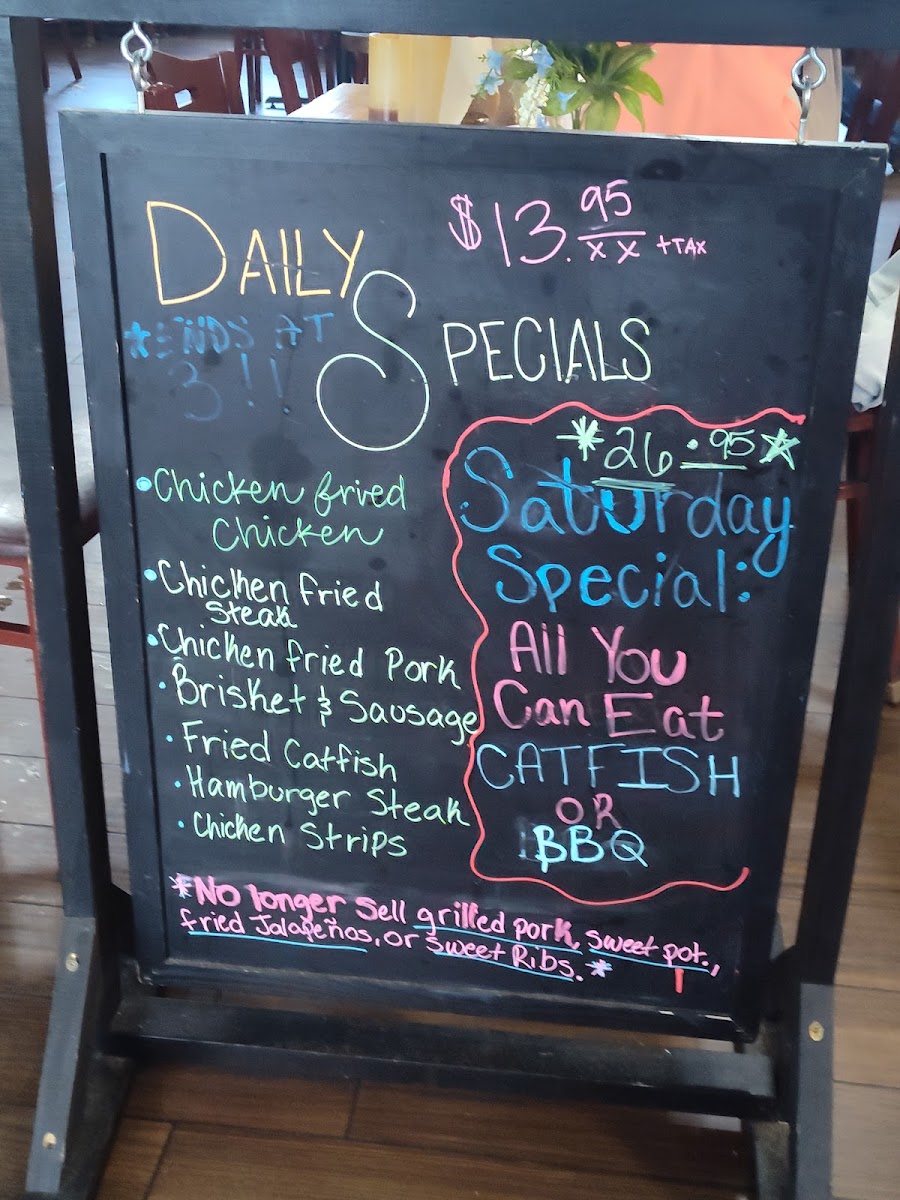 DAILY
$13.95
xx +TAX
SPECIALS
*ENDS AT
3!!
• Chicken fried
Chicken
• Chicken fried
Steak
• Chicken fried Pork
• Brisket & Sausage
• Fried Catfish
• Hamburger Steak
• Chicken Strips
*26.95☆
Saturday
Special:
All You
Can Eat
CATFISH
OR
BBQ
*No longer Sell grilled pork, sweet pot.,
fried Jalapeños, or sweet Ribs.*